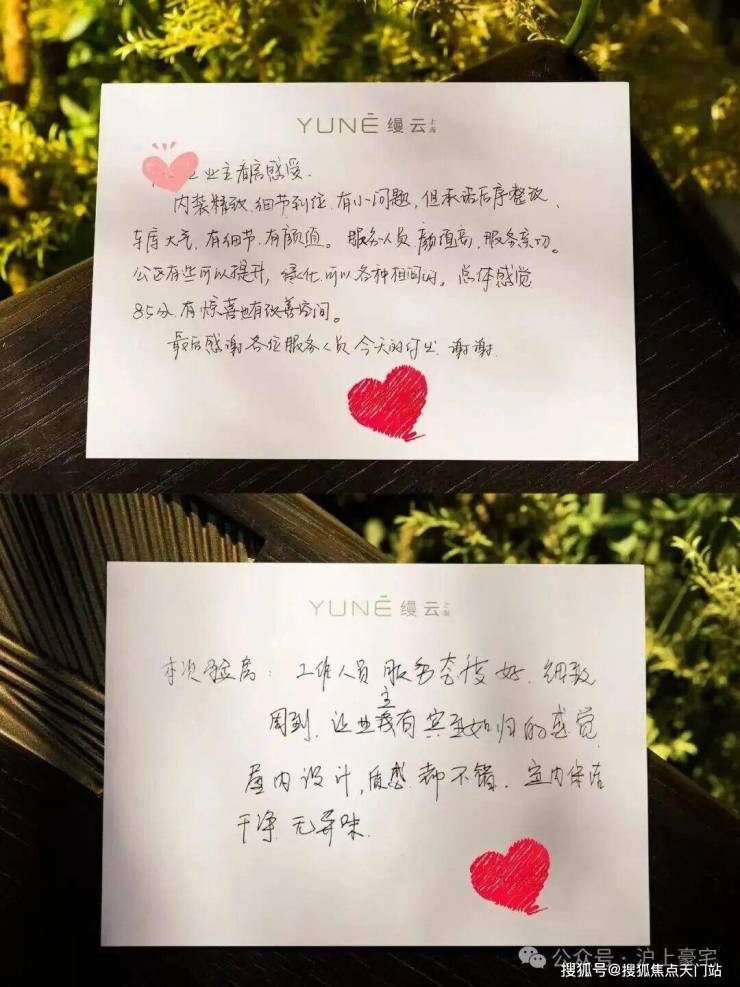 YUNĒ 缦云上海
业主看房感受.
内装精致.细节到位.有小问题,但承诺后序整改、
车库大气,有细节.有颜值。服务人员.颜值高,服务亲切。
公区有些可以提升,绿化.可以各种相间的。总体感觉
85分.有惊喜也有改善空间。
最后感谢各位服务人员今天的付出.谢谢.
YUNĒ 缦云上海
本次验房:工作人员服务态度好.细致
周到.让业主有宾至如归的感觉
屋内设计,质感都不错.室内保洁
干净无异味.
公众号·沪上豪宅
搜狐号@搜狐焦点天门站